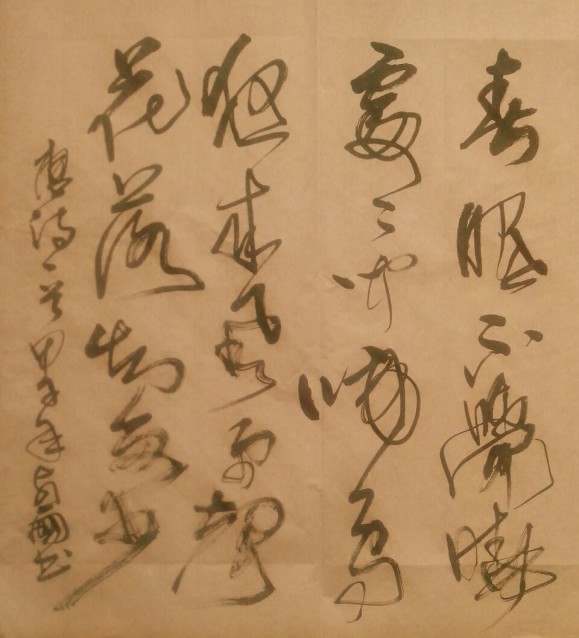 春眠不覺曉
處々聞啼鳥
夜來風雨聲
花落知多少
唐詩一首甲午年國書